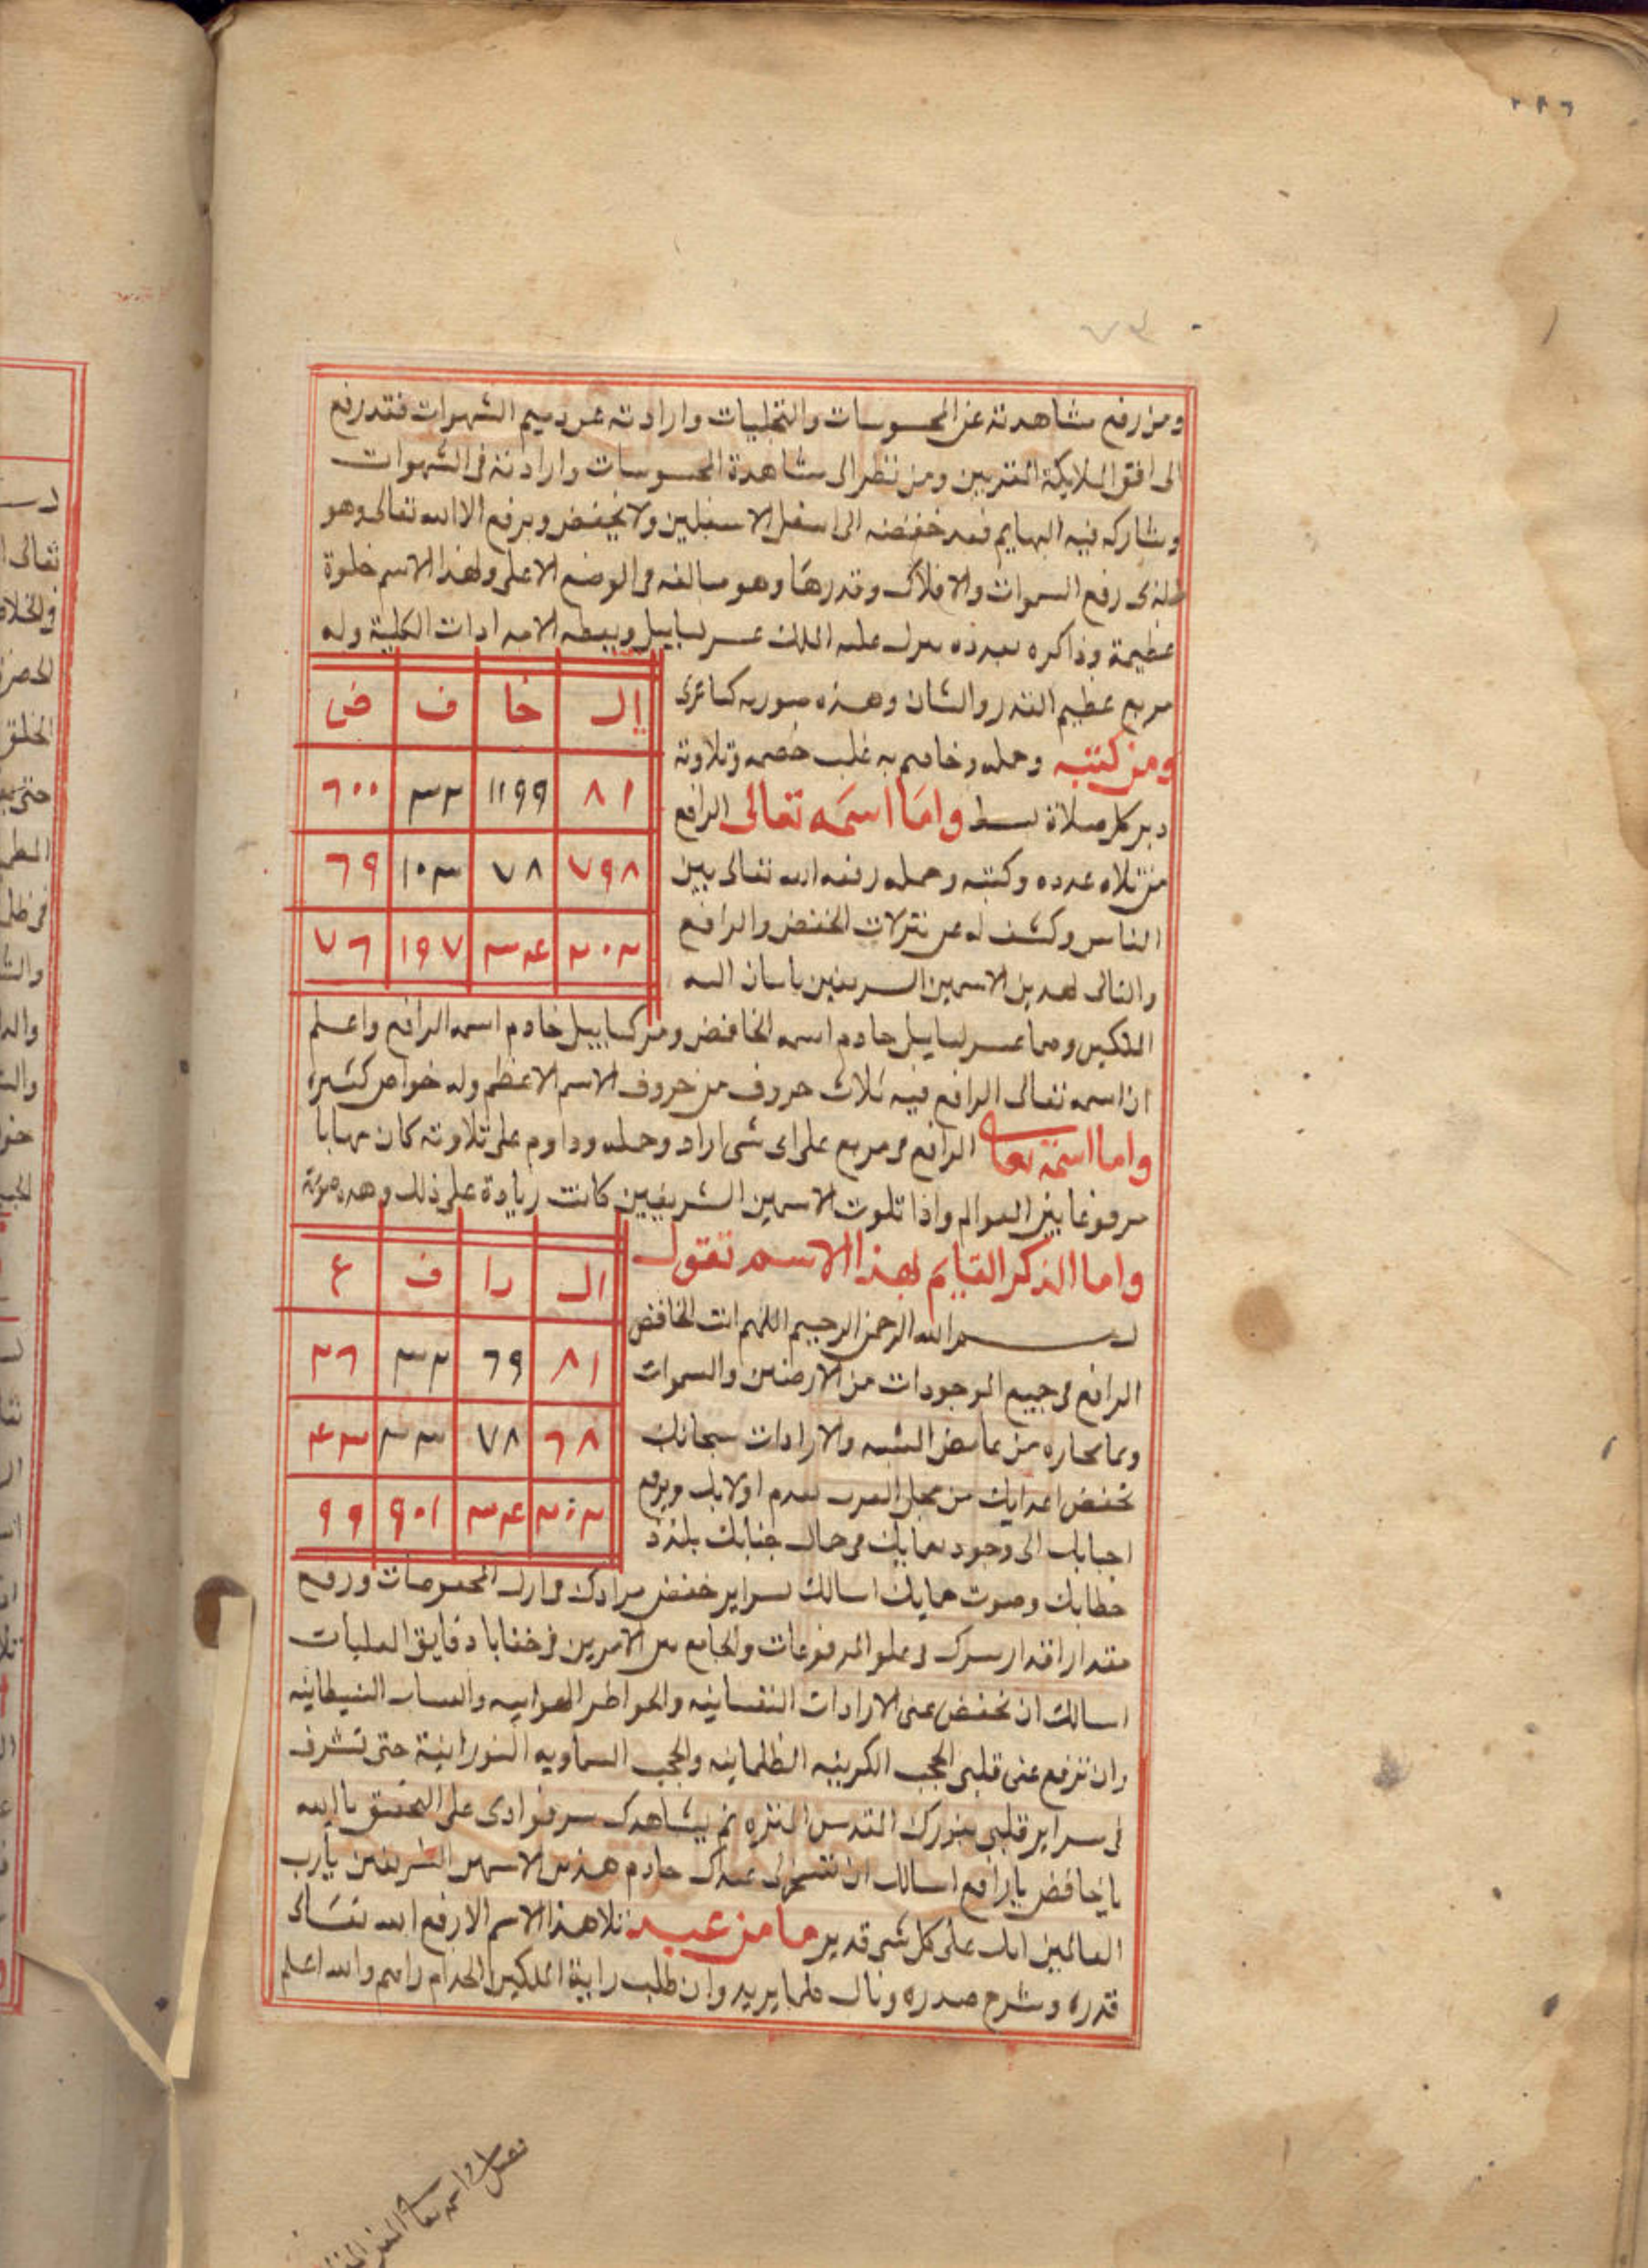 ٢٨٦
٧٤
ومن رفع مشاهدته عن المحسوسات والتخليات وارادته عن دميم الشهوات فقد رفع
الى افق الملايكة المقربين ومن نظر الى مشاهدة المحسوسات وارادته فى الشهوات
وشاركه فيه البهايم فقد خفضه الى اسفل الاسفلين ولا يخفض ويرفع الا الله تعالى وهو
الذى رفع السموات والافلاك وقدرها وهو سالفه فى الوضع الاعلى ولهذا الاسم خلوة
عظيمة وذاكره بعدده ىىرل عليه الملك ويعطه الامدادات الكلية وله
مربع عظيم القدر والشان وهذه صورته كما ترى
ال خا ف ض
٨١ ١١٩٩ ٣٢ ٦٠٠
٧٩٨ ٧٨ ١٠٣ ٦٩
٢٠٢ ٣٤ ١٩٧ ٧٦
ومن كتبه وحمله وخاصم به غلب خصمه وتلاوته
دبر كل صلاة بسط واما اسمه تعالى الرافع
من تلاه عدده وكتبه وحمله رفعه الله تعالى بين
الناس وكشف له عن تنزلات الخفض والرافع
والتالى لهدين الاسمين الشريفين ياتيان اليه
الملكين وهما خادم اسمه الخافض خادم اسمه الرافع واعلم
ان اسمه تعالى الرافع فيه ثلاث حروف من حروف الاسم الاعظم وله خواص كثيرة
واما اسمه تعالى الرافع فى مربع على اى شى اراد وحمله وداوم على تلاوته كان مهابا
مرفوعا بين العوالم واذا تلوت الاسمين الشريفين كانت زيادة على ذلك وهده صورته
ال را ف ع
٨١ ٦٩ ٣٢ ٢٦
٦٨ ٧٨ ٣٣ ٤٣
٢٠٢ ٣٤ ٩٠١ ٩٩
واما الذكر القايم لهذا الاسم تقول
بسم الله الرحمن الرحيم اللهم انت الخافض
الرافع فى جميع الموجودات من الارضين والسموات
وما من غامض الشبه والارادات سبحانك
تخفض اعدايك من محل القرب ىعدم اولايك وىرفع
احبابك الى وجود ىعايك فى حال جنابك بلذذ
خطابك وصوت حمايك اسالك بسراير خفض مرادك فى ارل المخفوضات ورفع
مقدار اقدار سرك فى علو المرفوعات والجامع بين الامرين فى خفايا دقايق العليات
اسالك ان تخفض عنى الارادات النفسانيه والخواطر الهوابيه الشيطانيه
وان ترفع عنى قلبى الحجب الكربيه الظلمانيه والحجب السماويه النورانية حتى تشرف
فى سراير قلبى بنورك القدس المنزه ثم يشاهدك سر فوادى على التحقيق ياالله
ياخافض يارافع اسالك ان تسخر لى عبدك خادم هذين الاسمين الشريفين يارب
العالمين انك على كل شى قدير ما من عبد تلا هذا الاسم الا رفع الله تعالى
قدره وشرح صدره ونال كلما يريد وان طلب راية الملكين الخدام راهم والله اعلم
فصل واما اسمه تعالى المعز